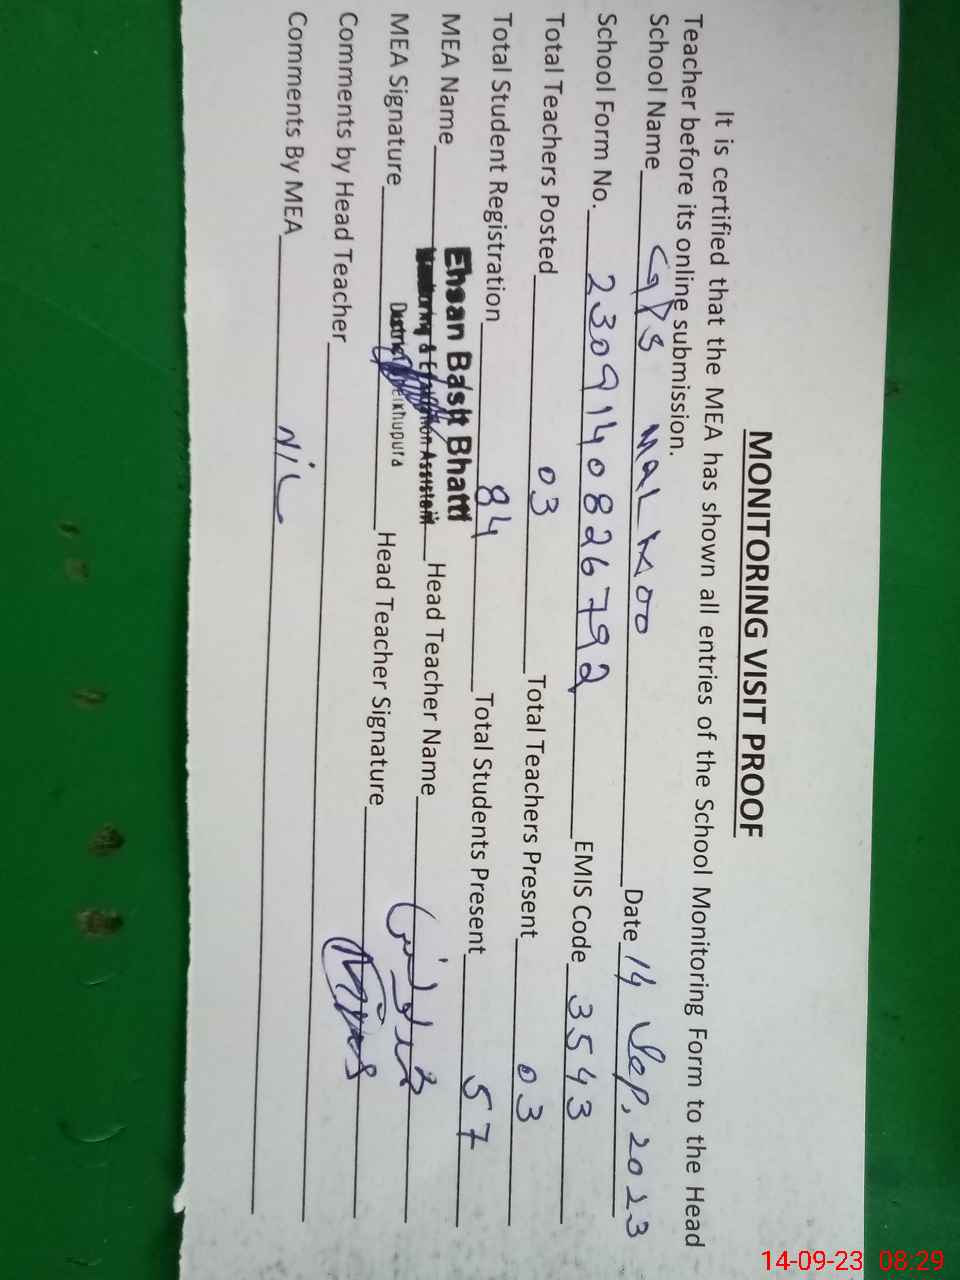 MONITORING VISIT PROOF
It is certified that the MEA has shown all entries of the School Monitoring Form to the Head
Teacher before its online submission.
School Name GPS MALKOO Date 14 Sep, 2023
School Form No. 2309140826792 EMIS Code 3543
Total Teachers Posted 03 Total Teachers Present 03
Total Student Registration 84 Total Students Present 57
MEA Name Ehsan Basit Bhatti Head Teacher Name
Monitoring & Evaluation Assistant
MEA Signature District Sheikhupura Head Teacher Signature
Comments by Head Teacher
Comments By MEA NiL
14-09-23 08:29